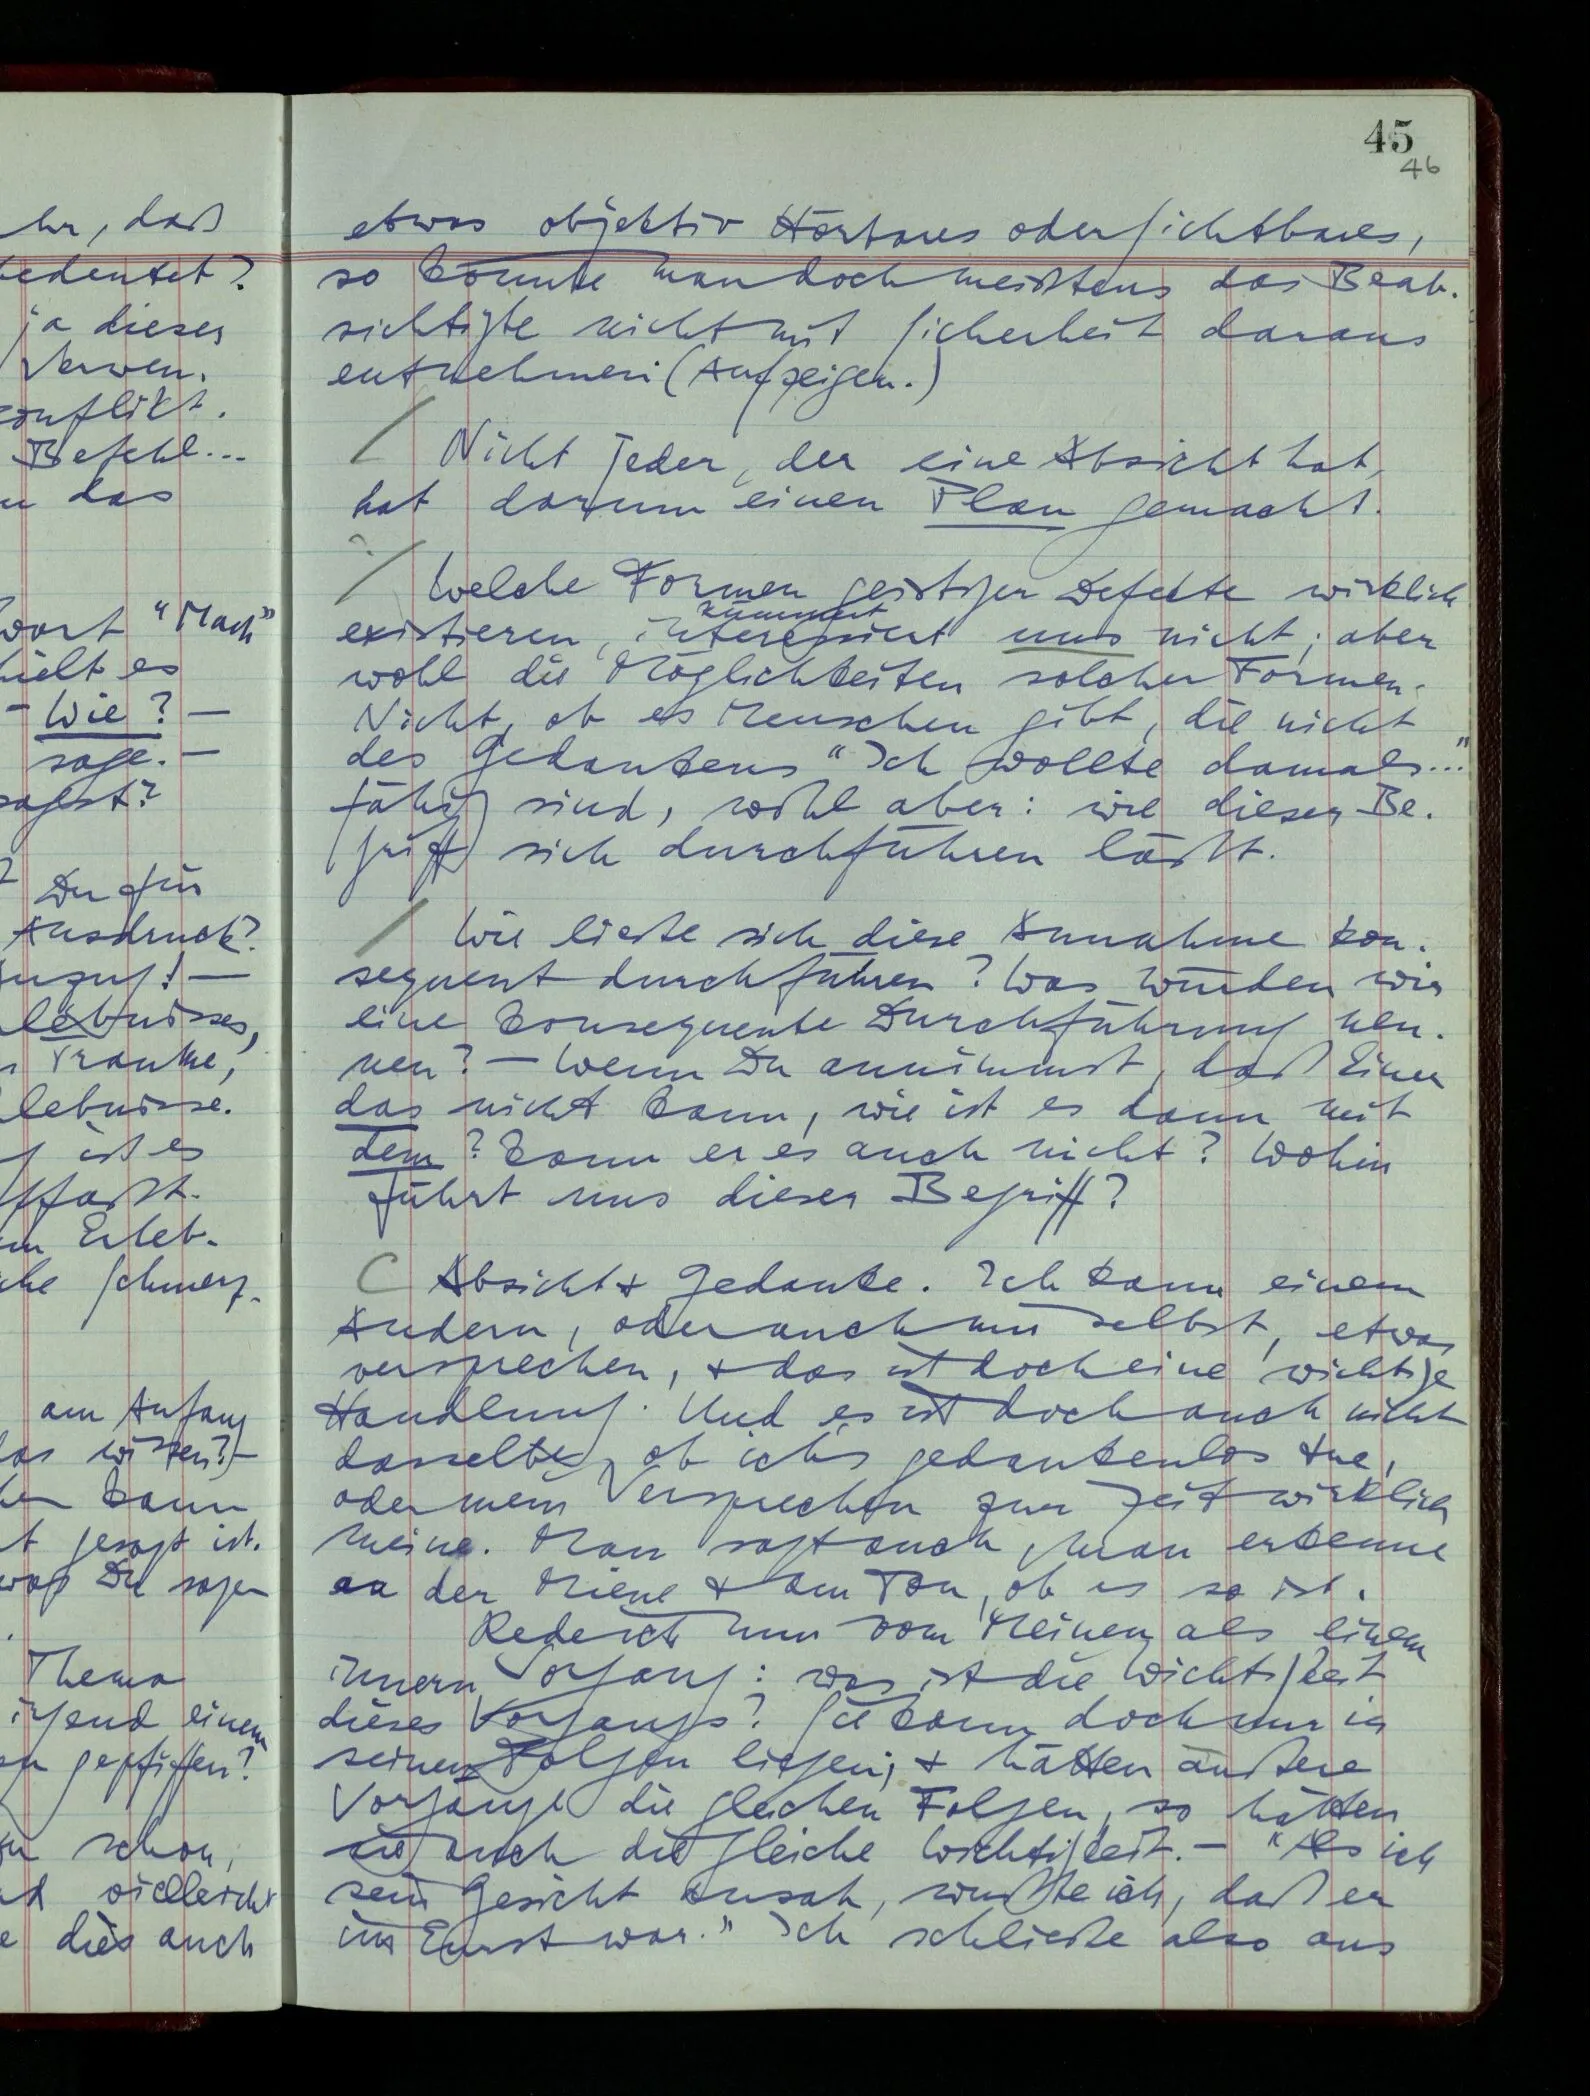 hr, daß
bedeutet?
ja dieser
Verwen-
konflikt.
Befehl...
das
wort "Mach"
hielt es
– Wie? –
sage. –
sagst?
Du für
Ausdruck?
–
lebnisses,
lebnisse.
ist es
pfaßt.
Erleb-
che Schmerz-
am Anfang
das wissen? –
kann
gesagt ist.
was Du sagen
Thema
irgend einem
gepfiffen?
schon,
vielleicht
dies auch
45
46
etwas objektiv Hörbares oder Sichtbares,
so könnte man doch meistens das Beab-
sichtigte nicht mit Sicherheit daraus
entnehmen. (Aufzeigen.)
/ Nicht jeder, der eine Absicht hat,
hat darum einen Plan gemacht.
? / Welche Formen geistiger Defekte wirklich
kümmert
existieren, interessiert uns nicht; aber
wohl die Möglichkeiten solcher Formen.
Nicht, ob es Menschen gibt, die nicht
des Gedankens "Ich wollte damals..."
fähig sind, wohl aber: wie dieser Be-
griff sich durchführen läßt.
/ Wie ließe sich diese Annahme kon-
sequent durchführen? Was würden wir
eine konsequente Durchführung nen-
nen? – Wenn Du annimmst, daß Einer
das nicht kann, wie ist es dann mit
dem? Kann er es auch nicht? Wohin
führt uns dieser Begriff?
C Absicht & Gedanke. Ich kann einem
Andern, oder auch mir selbst, etwas
versprechen, & das ist doch eine wichtige
Handlung. Und es ist doch auch nicht
dasselbe, ob ich's gedankenlos tue,
oder mein Versprechen zur Zeit wirklich
meine. Man sagt auch, man erkenne
an der Miene & am Ton, ob es so ist.
Rede ich nun vom Meinen als einem
innern Vorgang: was ist die Wichtigkeit
dieses Vorgangs? Sie kann doch nur in
seinen Folgen liegen; & hätten äußere
Vorgänge die gleichen Folgen, so hätten
sie auch die gleiche Wichtigkeit. – "Als ich
sein Gesicht ansah, wußte ich, daß er
im Ernst war." Ich schließe also aus